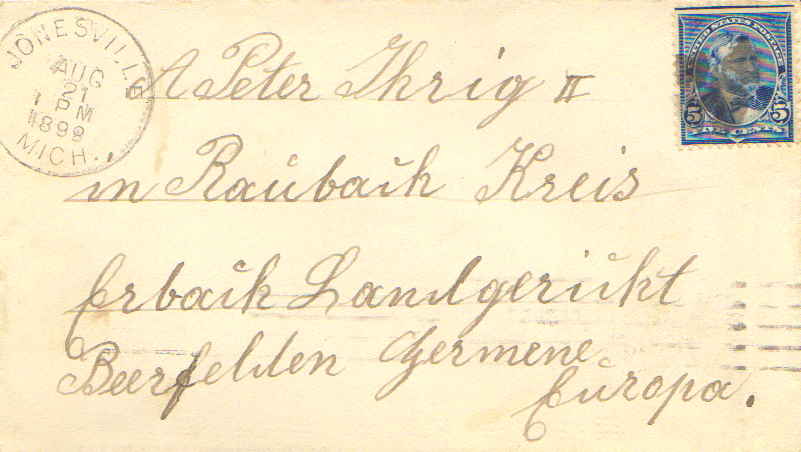 JONESVILLE
AUG
21
1 PM
1899
MICH.
UNITED STATES POSTAGE
5 5
A Peter Ihrig II
in Raubach Kreis
Erbach Landgericht
Beerfelden Germene
Europa.